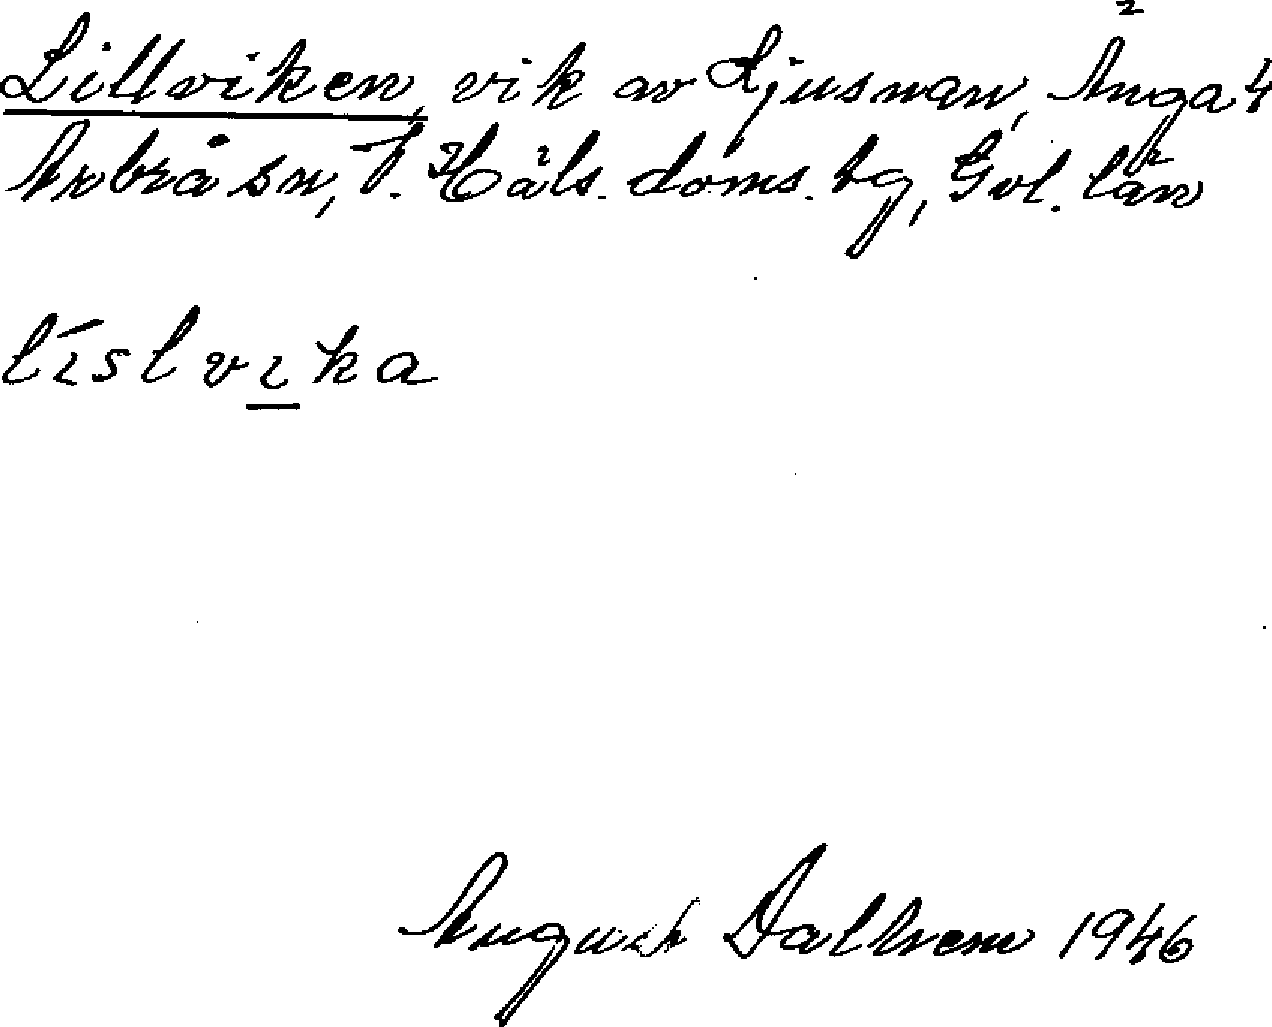 Lillviken, vik av Ljusnan, Änga 4
Arbrå sn, V. Häls. doms. bg, Gvl. län
líslvika
August Dalhem 1946